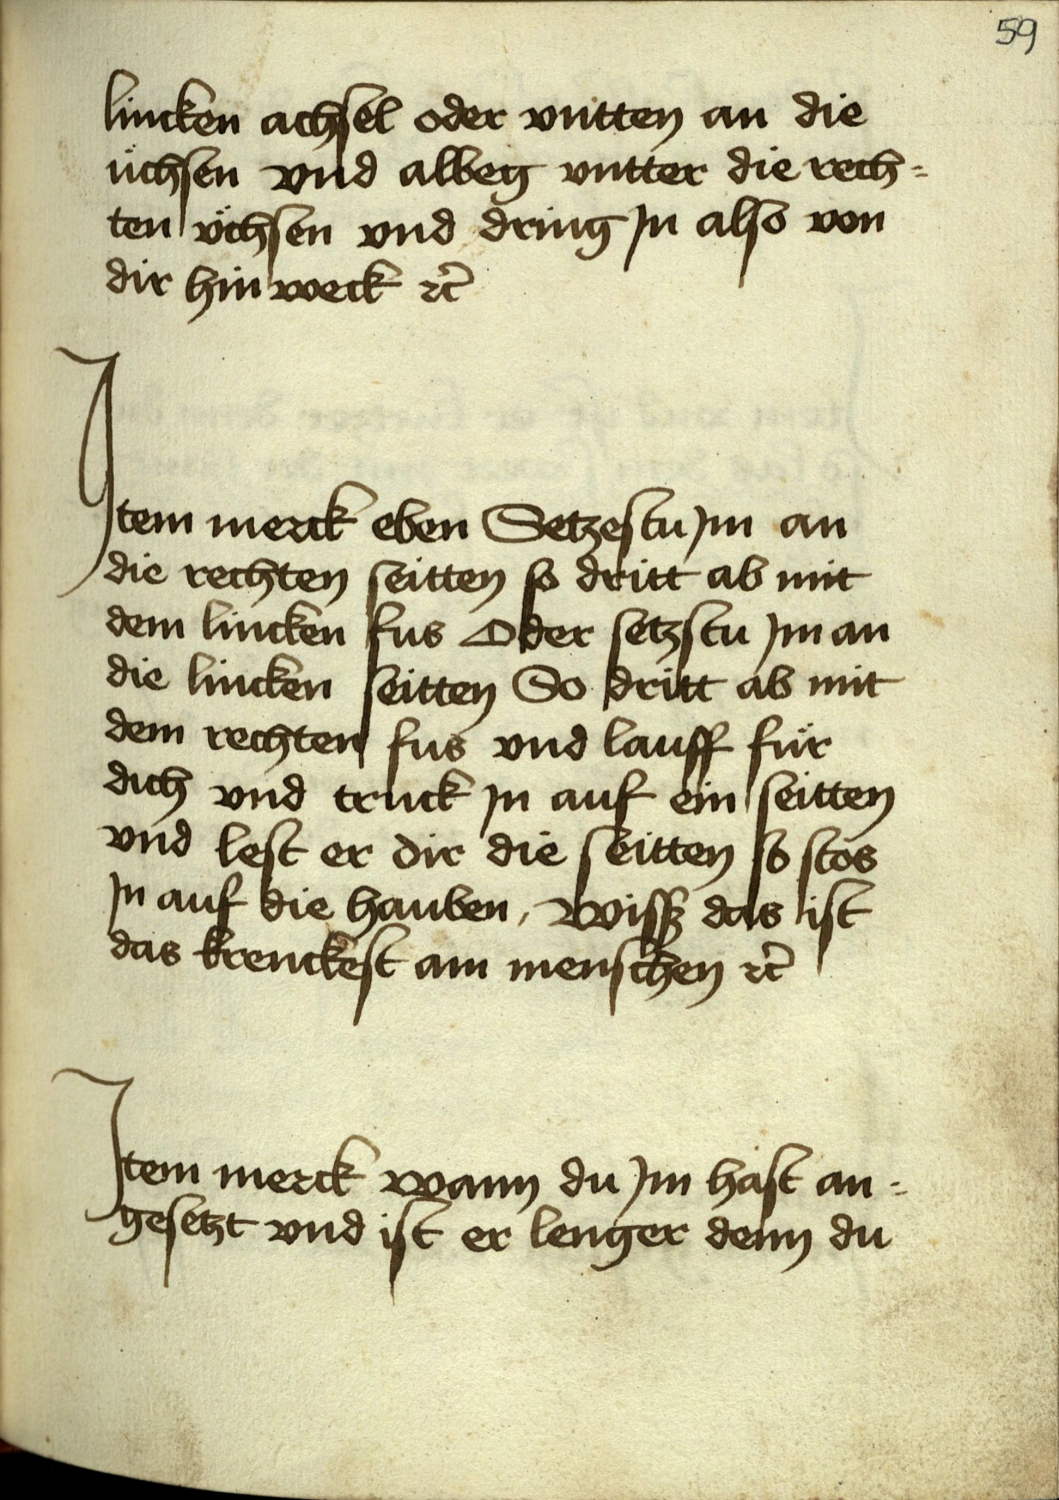 59
lincken achsel oder vntten an die
üchsen vnd albeg vntter die rech=
ten üchsen vnd dring Jn also von
dir hin weck rc̃
Jtem merck eben Setzestu Jm an
die rechten seitten so dritt ab mit
dem lincken fus Oder setzstu Jm an
die lincken seitten So dritt ab mit
dem rechten fus vnd lauff für
dich vnd truck Jn auf ein seitten
vnd lest er dir die seitten so stos
Jn auf die hauben, Wiss das ist
das krenckest am menschen rc̃
Jtem merck wann du Jm hast an-
gesetzt vnd ist er lenger denn du